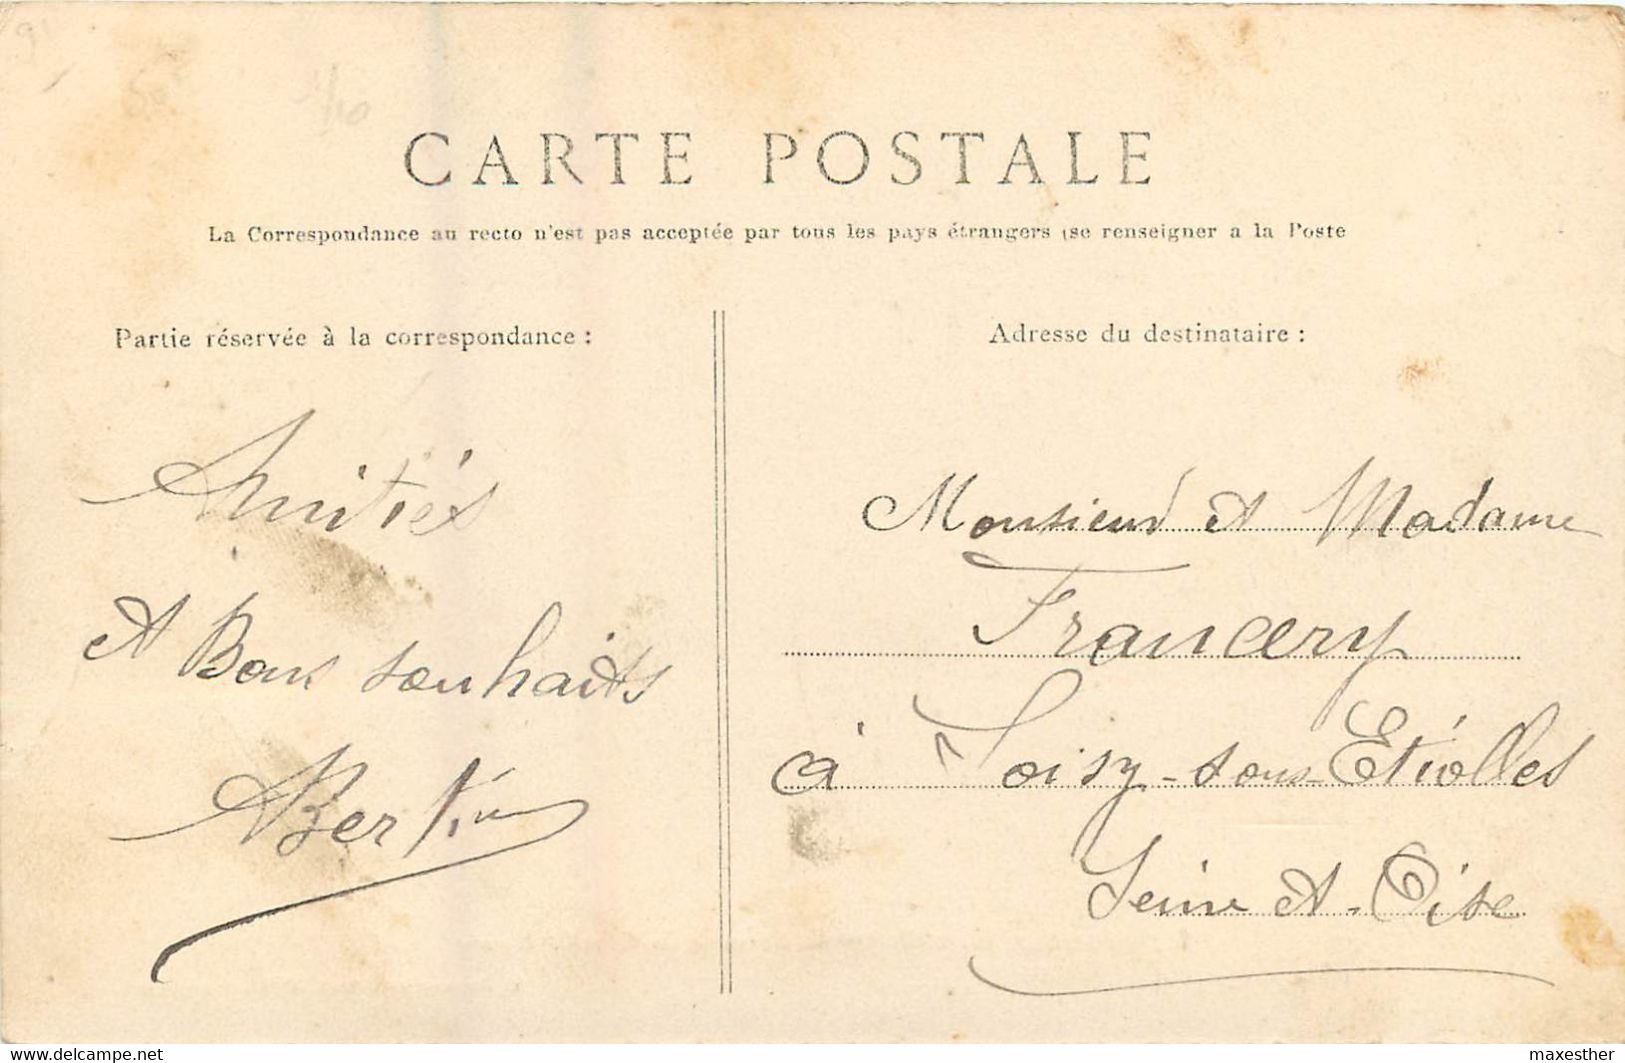 CARTE POSTALE
La Correspondance au recto n'est pas acceptée par tous les pays étrangers (se renseigner a la Poste
Partie réservée à la correspondance :
Amitiés
et Bons souhaits
Bertin
Adresse du destinataire :
Monsieur et Madame
Francery
à Soisy-sous-Etiolles
Seine et-Oise
www.delcampe.net
maxesther